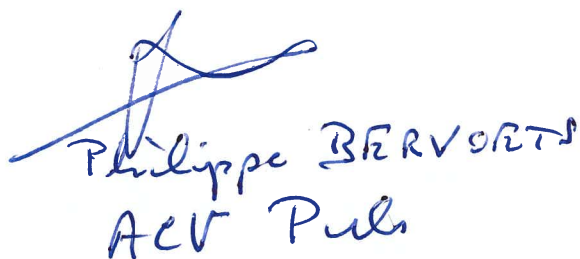 Philippe BERVOETS
ACV Puls